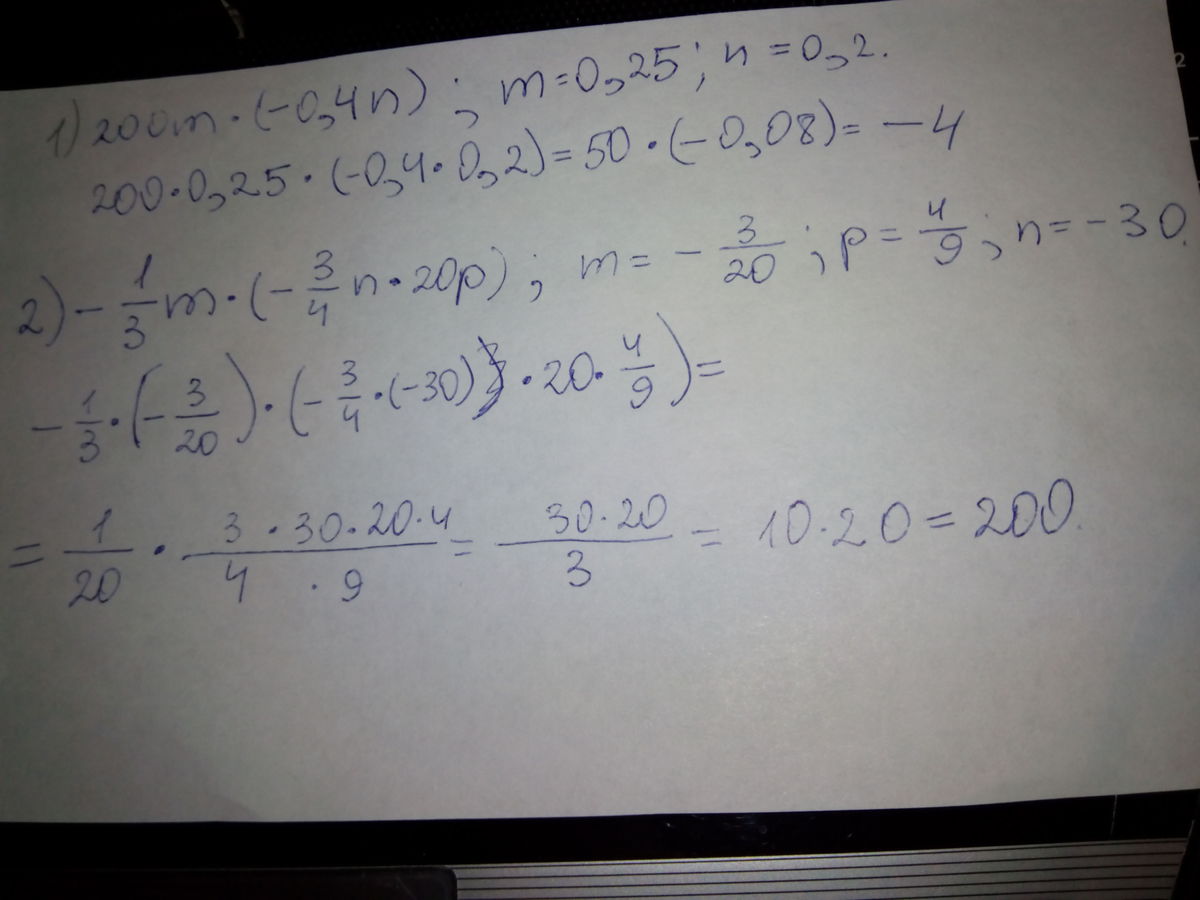 1) 200m · (-0,4n) ; m=0,25 ; n=0,2.
200·0,25 · (-0,4·0,2)=50 · (-0,08)= -4
2) - 1/3 m · (- 3/4 n · 20p) ; m= - 3/20 ; p= 4/9 ; n= -30.
- 1/3 · (- 3/20) · (- 3/4 · (-30) · 20 · 4/9) =
= 1/20 · (3 · 30 · 20 · 4)/(4 · 9) = (30 · 20)/3 = 10 · 20 = 200.